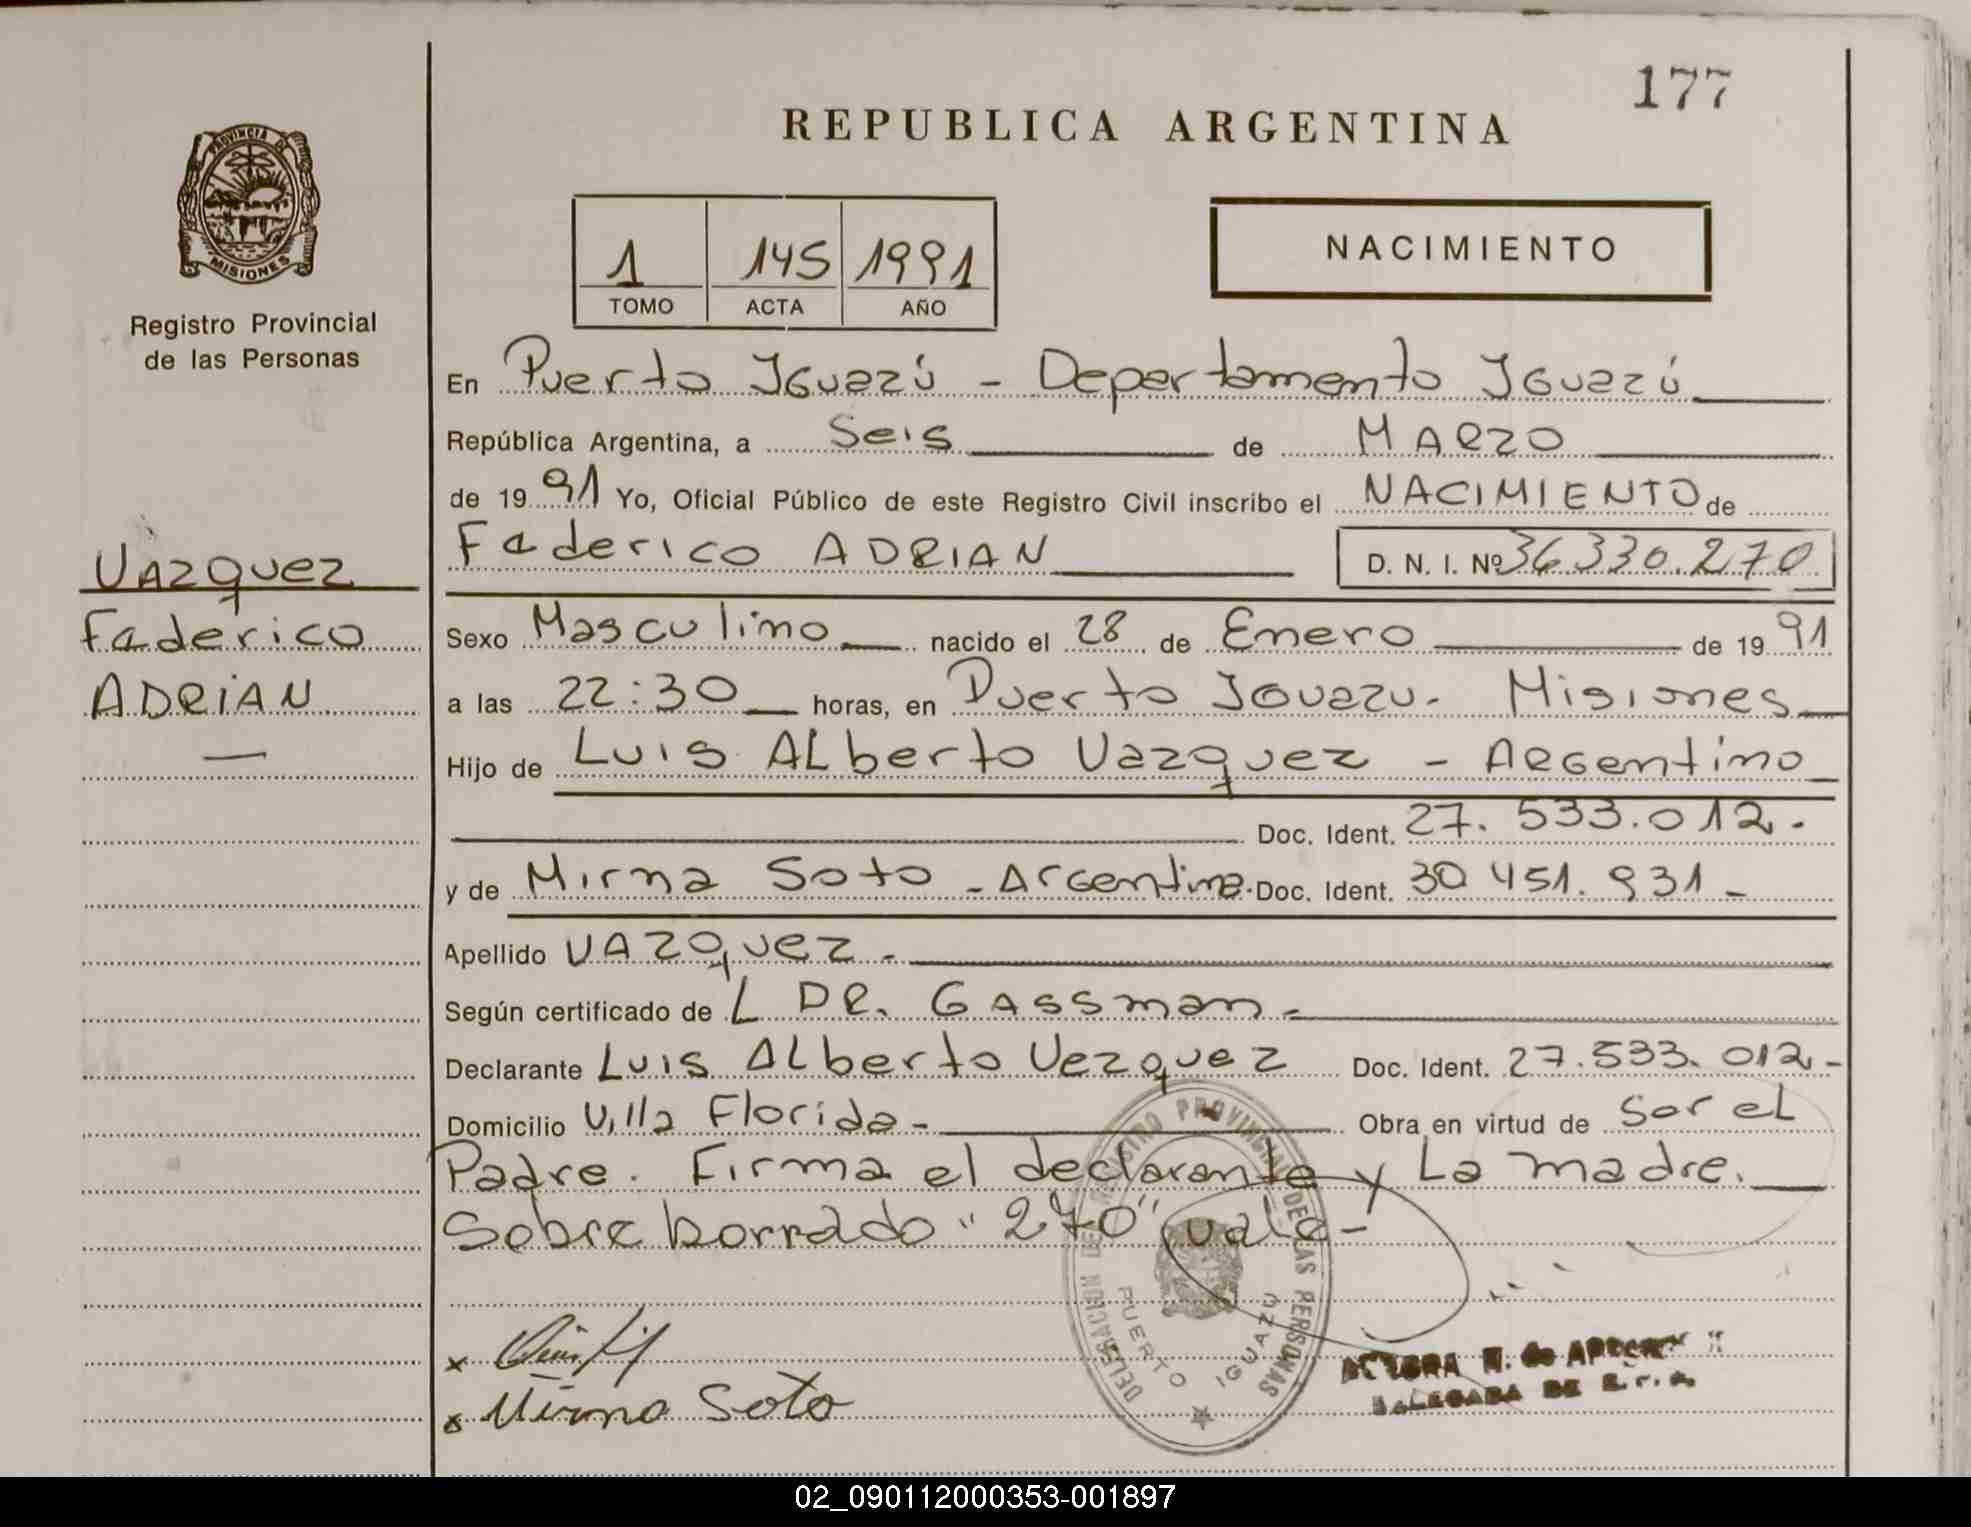 177
REPUBLICA ARGENTINA
PROVINCIA DE
MISIONES
Registro Provincial
de las Personas
1 145 1991
TOMO ACTA AÑO
NACIMIENTO
En Puerto Iguazú - Departamento Iguazú
República Argentina, a Seis de MARZO
de 1991 Yo, Oficial Público de este Registro Civil inscribo el NACIMIENTO de
Federico ADRIAN D. N. I. Nº 36.330.270
Vazquez
Federico
ADRIAN
Sexo Masculino nacido el 28 de Enero de 1991
a las 22:30 horas, en Puerto Iguazu. Misiones
Hijo de Luis ALberto Vazquez - Argentino
Doc. Ident. 27.533.012.-
y de Mirna Soto - Argentina. Doc. Ident. 30 451.931 -
Apellido VAZquez.-
Según certificado de L DR. GASSman.-
Declarante Luis ALberto Vazquez Doc. Ident. 27.533.012-
Domicilio Villa Florida - Obra en virtud de Ser el
Padre. Firma el declarante y La madre.
Sobre borrado "270" vale-
x
x Mirna Soto
DELEGACION DEL REGISTRO PROVINCIAL DE LAS PERSONAS
PUERTO IGUAZU
DELEGADA DE
02_090112000353-001897